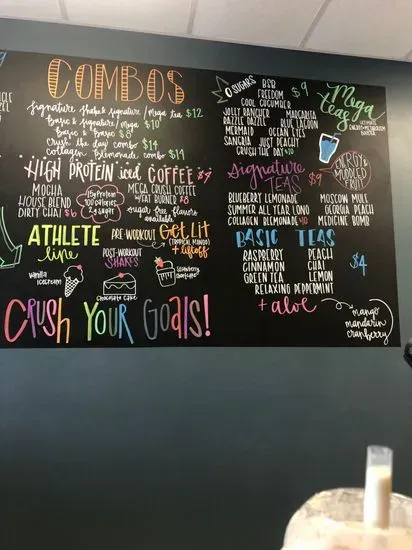 COMBOS
Signature Shake & Signature/Mega tea $12
Basic & Signature/Mega $10
Basic & Basic $8
Crush the day combo $14
Collagen Blemonade combo $14
HIGH PROTEIN iced COFFEE $7
MOCHA
HOUSE BLEND
DIRTY CHAI $6
15g Protein
100 calories
2g sugar
MEGA CRUSH COFFEE
w/FAT BURNER $8
sugar free flavors
available
ATHLETE
line
PRE-WORKOUT
Get Lit
(TROPICAL MANGO)
+ liftoff
POST-WORKOUT
SHAKES
vanilla
icecream
chocolate cake
strawberry
CRUSH YOUR GOALS!
0 SUGARS
BSB
FREEDOM
COOL CUCUMBER
$9
JOLLY RANCHER
RAZZLE DAZZLE
MERMAID
SANGRIA
CRUSH THE DAY $10
MARGARITA
BLUE LAGOON
OCEAN LIES
JUST PEACHY
Mega
teas
ULTIMATE
ENERGY+METABOLISM
BOOSTER
Signature
TEAS $9
ENERGY &
MUDDLED
FRUIT
BLUEBERRY LEMONADE
SUMMER ALL YEAR LONG
COLLAGEN BLEMONADE $10
MOSCOW MULE
GEORGIA PEACH
MEDICINE BOMB
BASIC TEAS
RASPBERRY
CINNAMON
GREEN TEA
PEACH
CHAI
LEMON
RELAXING PEPPERMINT
$4
+ aloe
mango
mandarin
cranberry